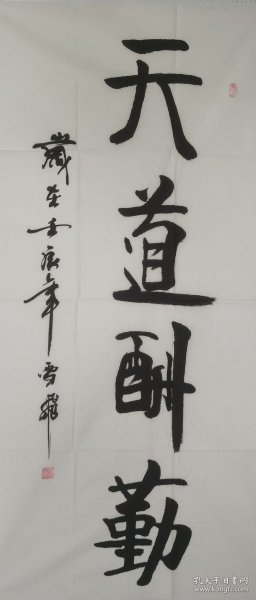 天道酬勤
歲在壬辰年雪飛
孔夫子旧书网
www.kongfz.com